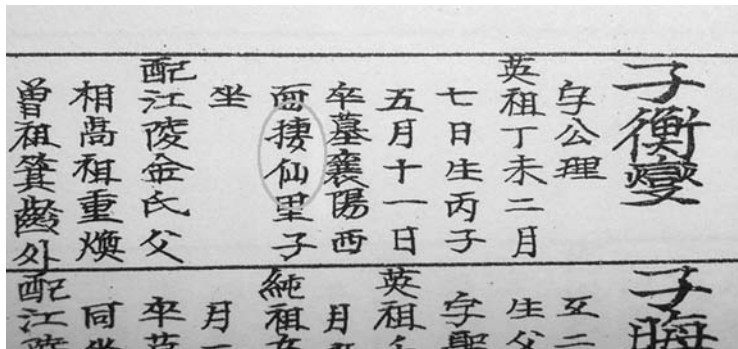 子衡燮
字公理
英祖丁未二月
七日生丙子
五月十一日
卒墓襄陽西
面捿仙里子
坐
配江陵金氏父
相高祖重煥
曾祖箕齡外
子
二
生父
字
英祖
月
純祖
月
卒
同
配江陵